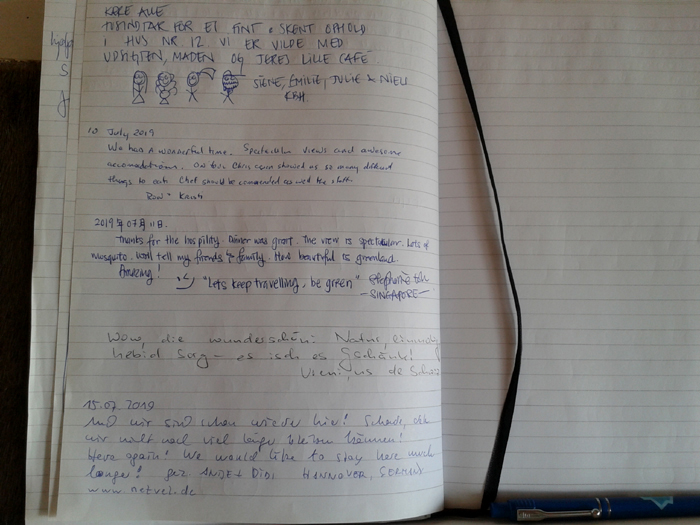 KÆRE ALLE
TUSIND TAK FOR ET FINT & SKØNT OPHOLD
I HUS NR 12. VI ER VILDE MED
UDSIGTEN, MADEN OG JERES LILLE CAFÉ
SIGNE, EMILIE, JULIE & NIELI
KBH
10 July 2019
We had a wonderful time. Spectacular views and awesome
accomodations. Our tour showed us so many different
things to eat. Chef should be commended as well the staff.
Ron + Krish
2019年07月11日.
Thanks for the hospility. Dinner was great. The view is spectacular. Lots of
mosquito. Will tell my friends & family. How beautiful is greenland.
Amazing! "Lets keep travelling, be green" Stephanie
SINGAPORE
Wow, die wunderschöni Natur,
hebid Sorg - es isch es Gschänk!
us de Schwiz
15.07.2019
Und wir sind schon wieder hier! Schade, dass
wir nicht noch viel länger bleiben können!
Here again! We would like to stay here much
longer! gez. ANDE + DIDI HANNOVER, GERMANY
www.netvel.de